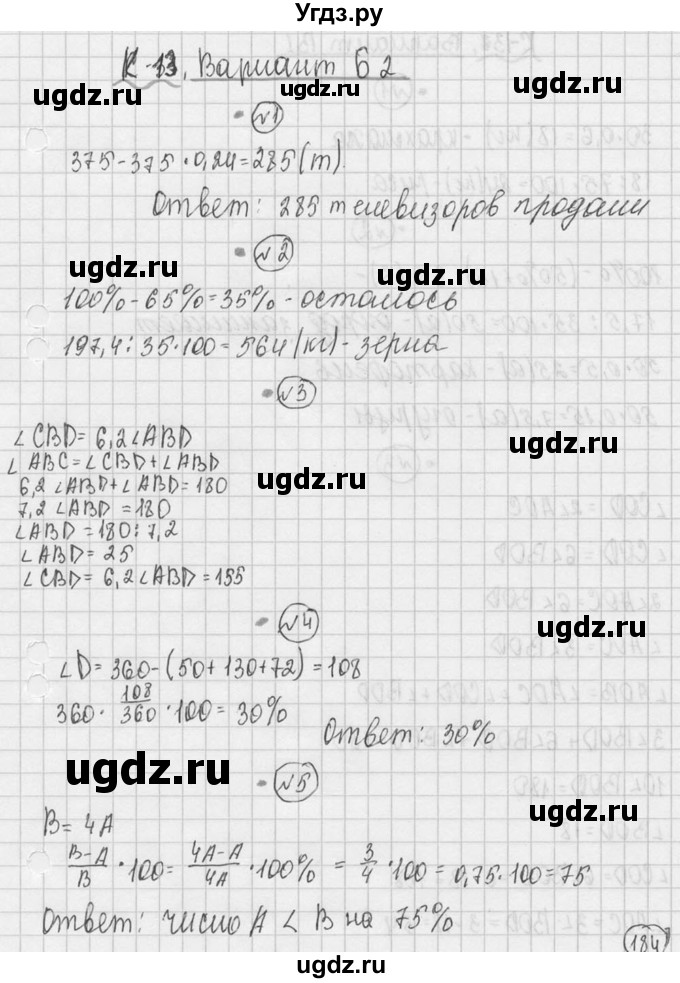 Угдз.ру
К-13. Вариант Б2
ugdz.ru ugdz.ru
№1
375-375·0,24=285(т).
ugdz.ru
Ответ: 285 телевизоров продали
№2
ugdz.ru ugdz.ru
100%-65%=35% - осталось
197,4:35·100=564(кг)-зерна
ugdz.ru
№3
∠CBD=6,2∠ABD
∠ABC=∠CBD+∠ABD
6,2∠ABD+∠ABD=180
ugdz.ru
7,2∠ABD=180
∠ABD=180:7,2
∠ABD=25
∠CBD=6,2∠ABD=155
№4
ugdz.ru
∠D=360-(50+130+72)=108
360·108/360·100=30%
Ответ: 30%
ugdz.ru
№5
ugdz.ru
B=4A
B-A/B·100=4A-A/4A·100%=3/4·100=0,75·100=75
Ответ: число A ∠ B на 75%
ugdz.ru
184
ugdz.ru